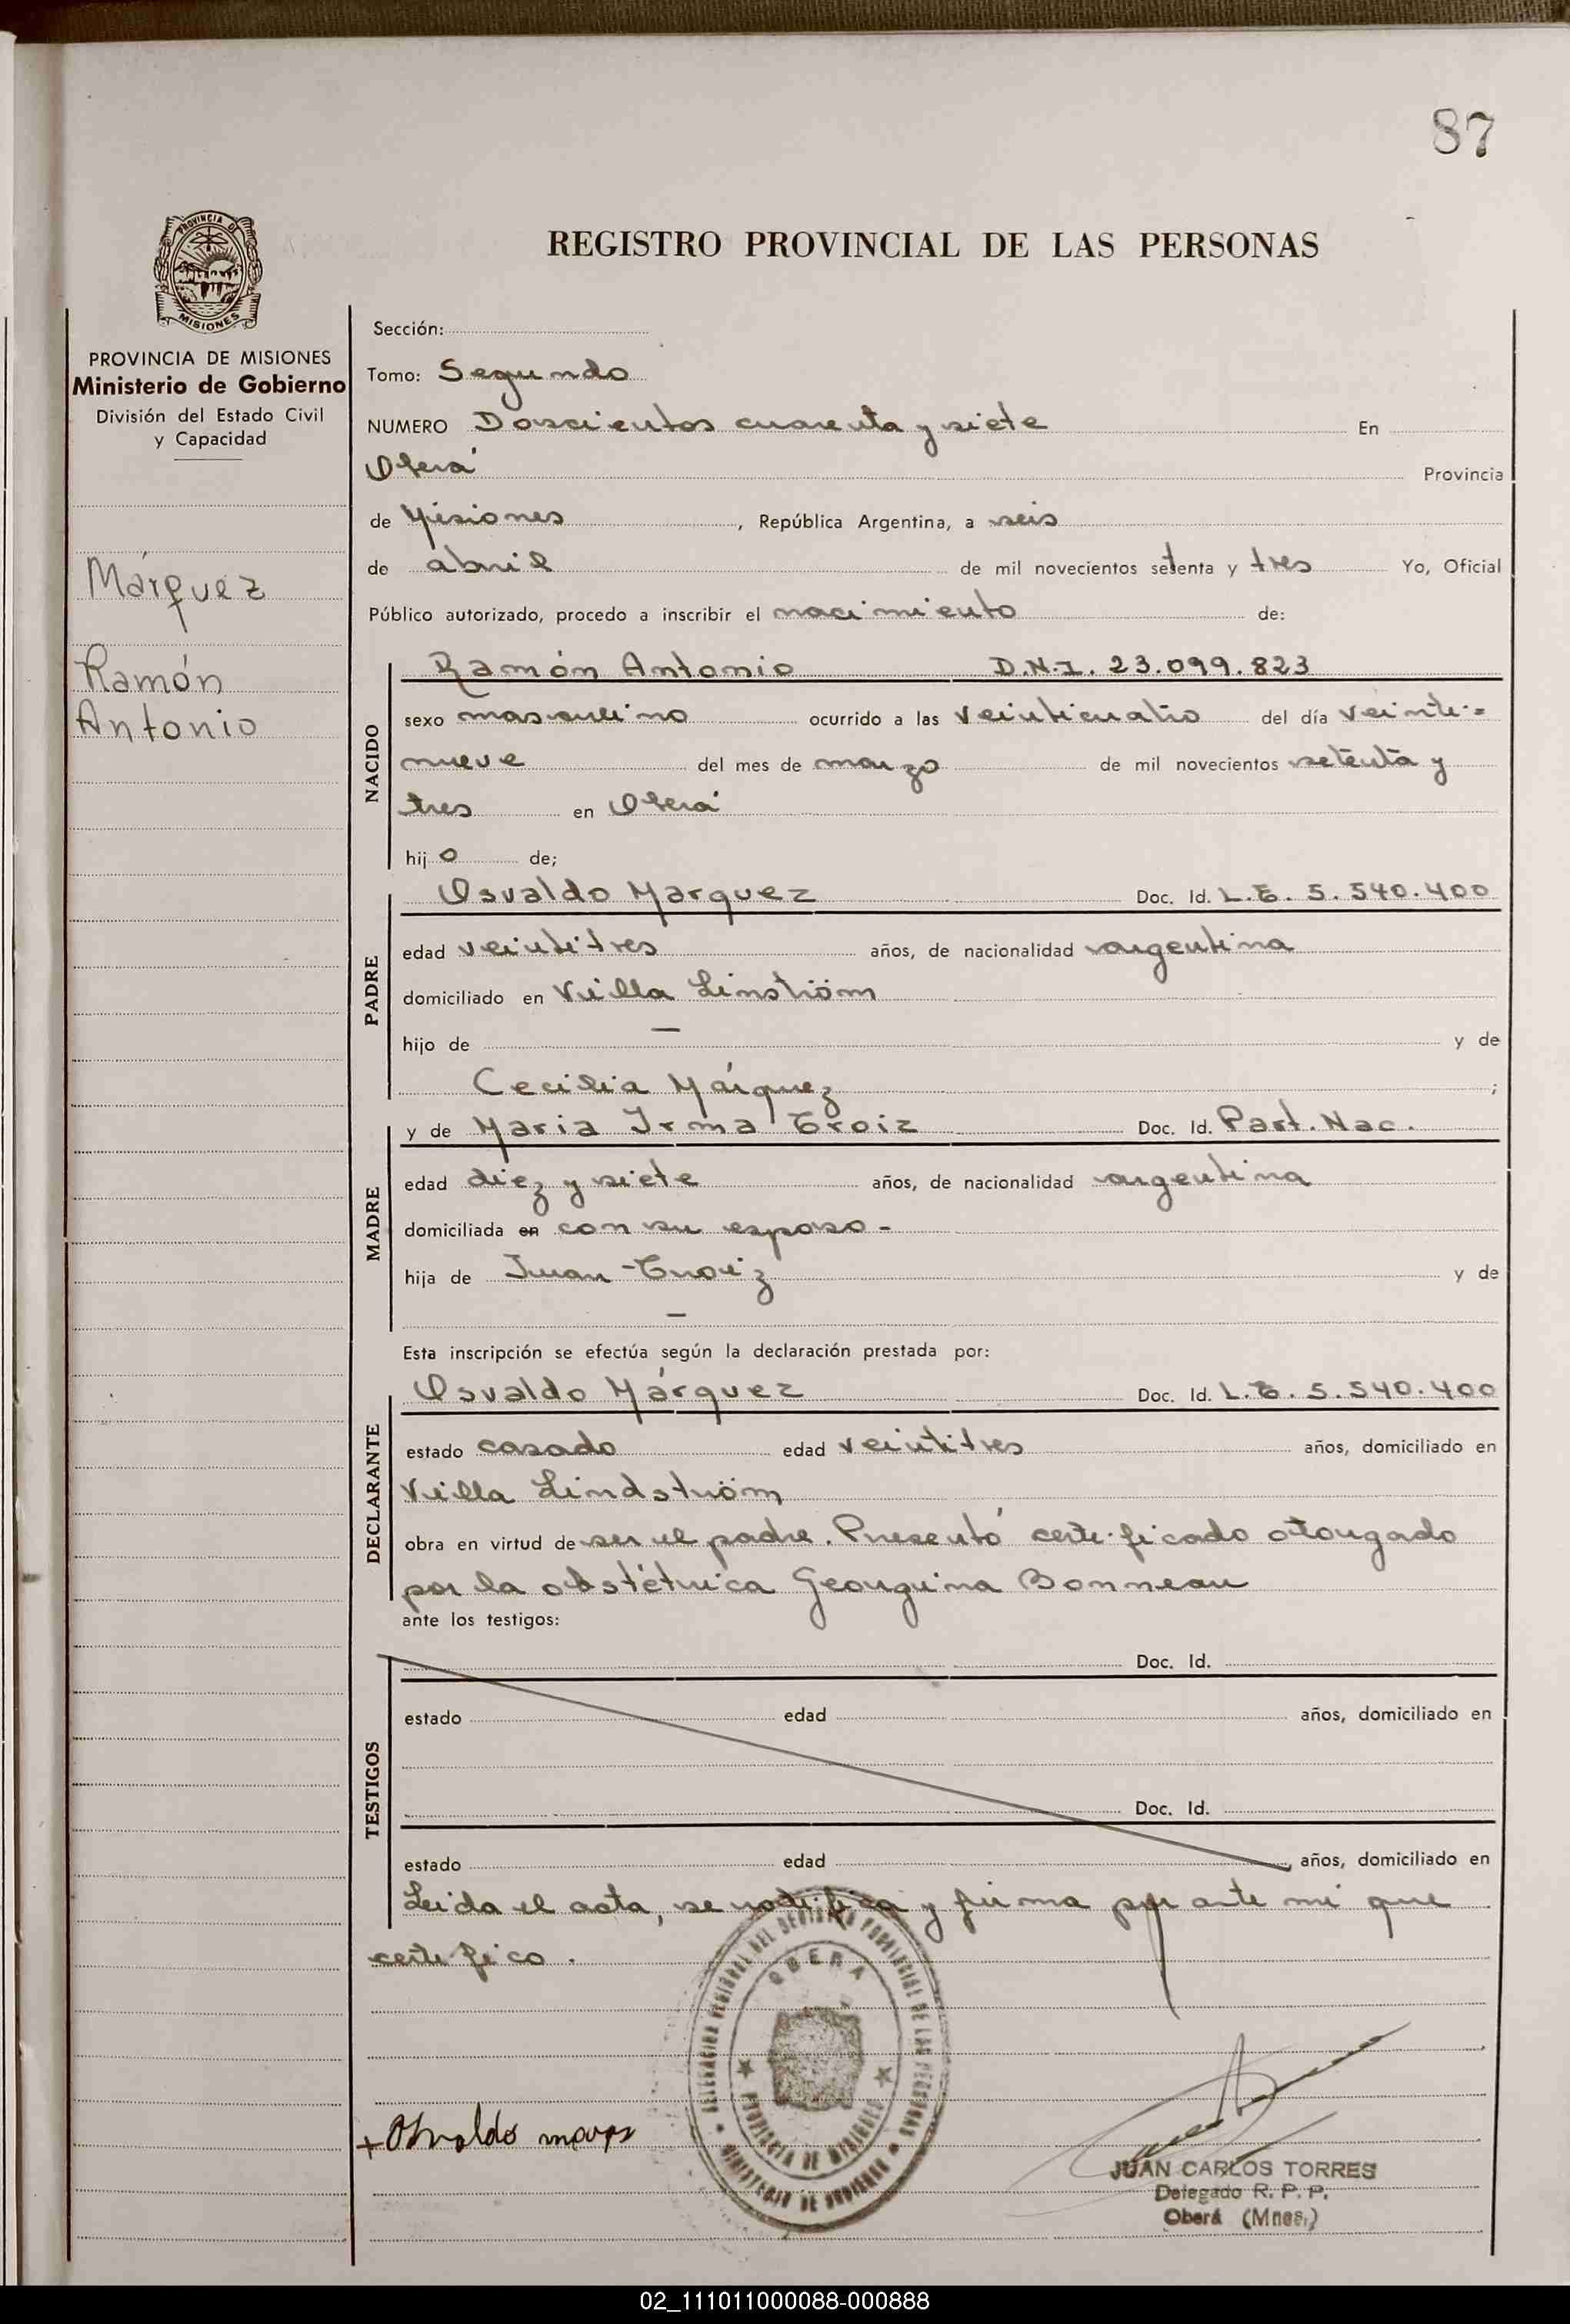 87
PROVINCIA DE
MISIONES
REGISTRO PROVINCIAL DE LAS PERSONAS
PROVINCIA DE MISIONES
Ministerio de Gobierno
División del Estado Civil
y Capacidad
Márquez
Ramón
Antonio
Sección:
Tomo: Segundo
NUMERO Doscientos cuarenta y siete En
Oberá Provincia
de Misiones, República Argentina, a seis
de abril de mil novecientos setenta y tres Yo, Oficial
Público autorizado, procedo a inscribir el nacimiento de:
NACIDO
Ramón Antonio D.N.I. 23.099.823
sexo masculino ocurrido a las veinticuatro del día veinti=
nueve del mes de marzo de mil novecientos setenta y
tres en Oberá
hijo de;
PADRE
Osvaldo Marquez Doc. Id. L.E. 5.540.400
edad veintitres años, de nacionalidad argentina
domiciliado en Villa Linström
hijo de — y de
Cecilia Márquez ;
MADRE
y de Maria Irma Troiz Doc. Id. Part. Nac.
edad diez y siete años, de nacionalidad argentina
domiciliada en con su esposo -
hija de Juan Troiz y de
—
Esta inscripción se efectúa según la declaración prestada por:
DECLARANTE
Osvaldo Márquez Doc. Id. L.E. 5.540.400
estado casado edad veintitres años, domiciliado en
Villa Lindström
obra en virtud de ser el padre. Presentó certificado otorgado
por la obstétrica Georguina Bonneau
ante los testigos:
TESTIGOS
Doc. Id.
estado edad años, domiciliado en
Doc. Id.
estado edad años, domiciliado en
Leida el acta, se notifica y firma por ante mi que
certifico.
DELEGACION REGIONAL DEL REGISTRO PROVINCIAL DE LAS PERSONAS
OBERA
PROVINCIA DE MISIONES
MINISTERIO DE GOBIERNO
+ Osvaldo
JUAN CARLOS TORRES
Delegado R. P. P.
Oberá (Mnes.)
02_111011000088-000888